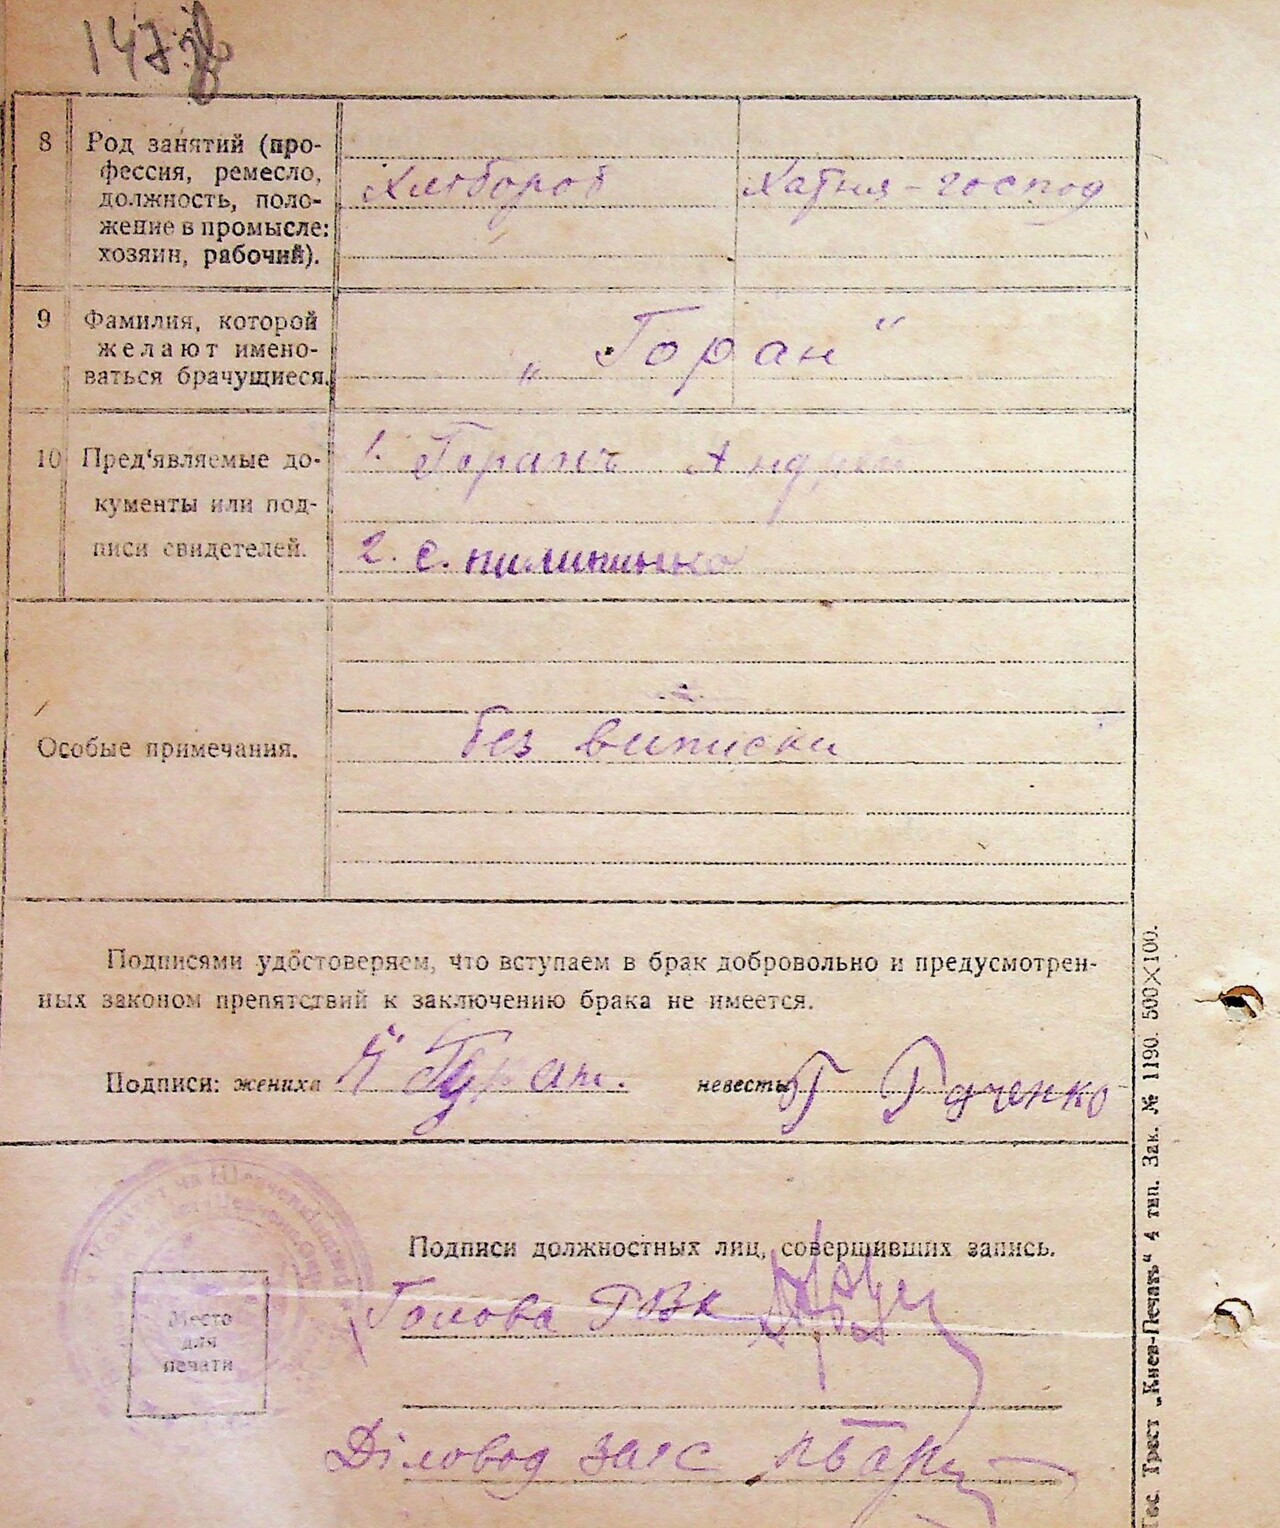 147
8 Род занятий (про-
фессия, ремесло,
должность, поло-
жение в промысле:
хозяин, рабочий).
Хлебороб Хатня-господ
9 Фамилия, которой
желают имено-
ваться брачущиеся.
„Горан“
10 Пред‘являемые до-
кументы или под-
писи свидетелей.
1. Горань Андрей
2. С. пилипинко
Особые примечания.
без виписки
Подписями удостоверяем, что вступаем в брак добровольно и предусмотрен-
ных законом препятствий к заключению брака не имеется.
Подписи: жениха Горан. невесты Г Раченко
Подписи должностных лиц, совершивших запись.
Голова РВК
Место
для
печати
Діловод загс
Гос. Трест „Киев-Печать“ 4 тип. Зак. № 1190. 500×100.